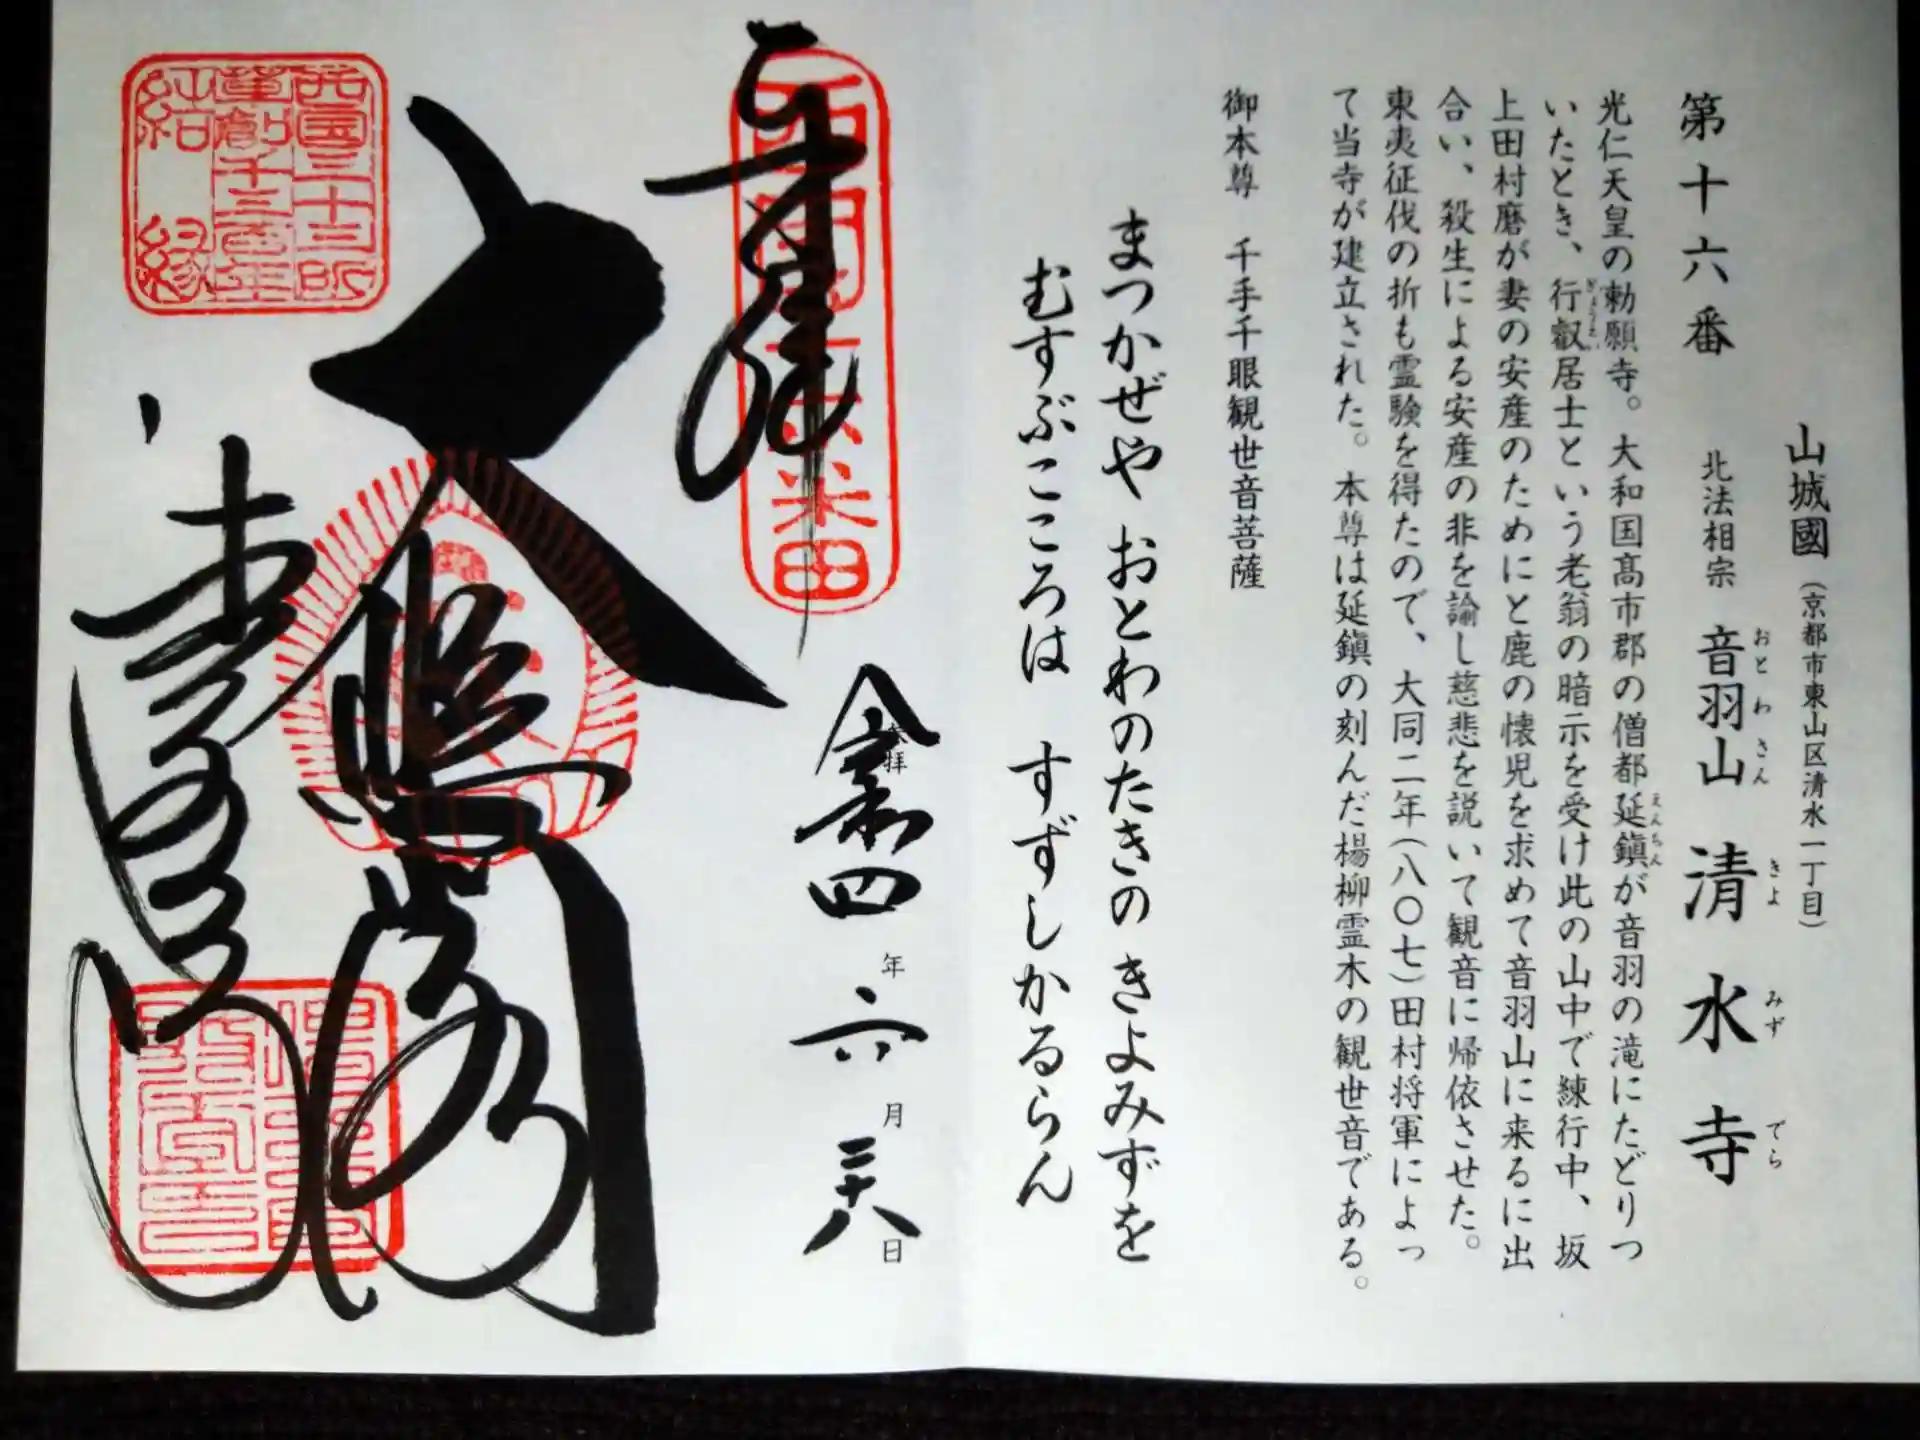 山城國（京都市東山区清水一丁目）
第十六番　北法相宗　音羽山　清水寺
おとわさん　きよみずでら
光仁天皇の勅願寺。大和国高市郡の僧都延鎮が音羽の滝にたどりつ
えんちん
いたとき、行叡居士という老翁の暗示を受け此の山中で練行中、坂
ぎょうえい
上田村磨が妻の安産のためにと鹿の懐児を求めて音羽山に来るに出
合い、殺生による安産の非を諭し慈悲を説いて観音に帰依させた。
東夷征伐の折も霊験を得たので、大同二年（八〇七）田村将軍によっ
て当寺が建立された。本尊は延鎮の刻んだ楊柳霊木の観世音である。
御本尊　千手千眼観世音菩薩
まつかぜや　おとわのたきの　きよみずを
むすぶこころは　すずしかるらん
奉拝
令和四年六月二十八日
西国十六番
大悲閣
清水寺
西国三十三所
草創千三百年
結縁